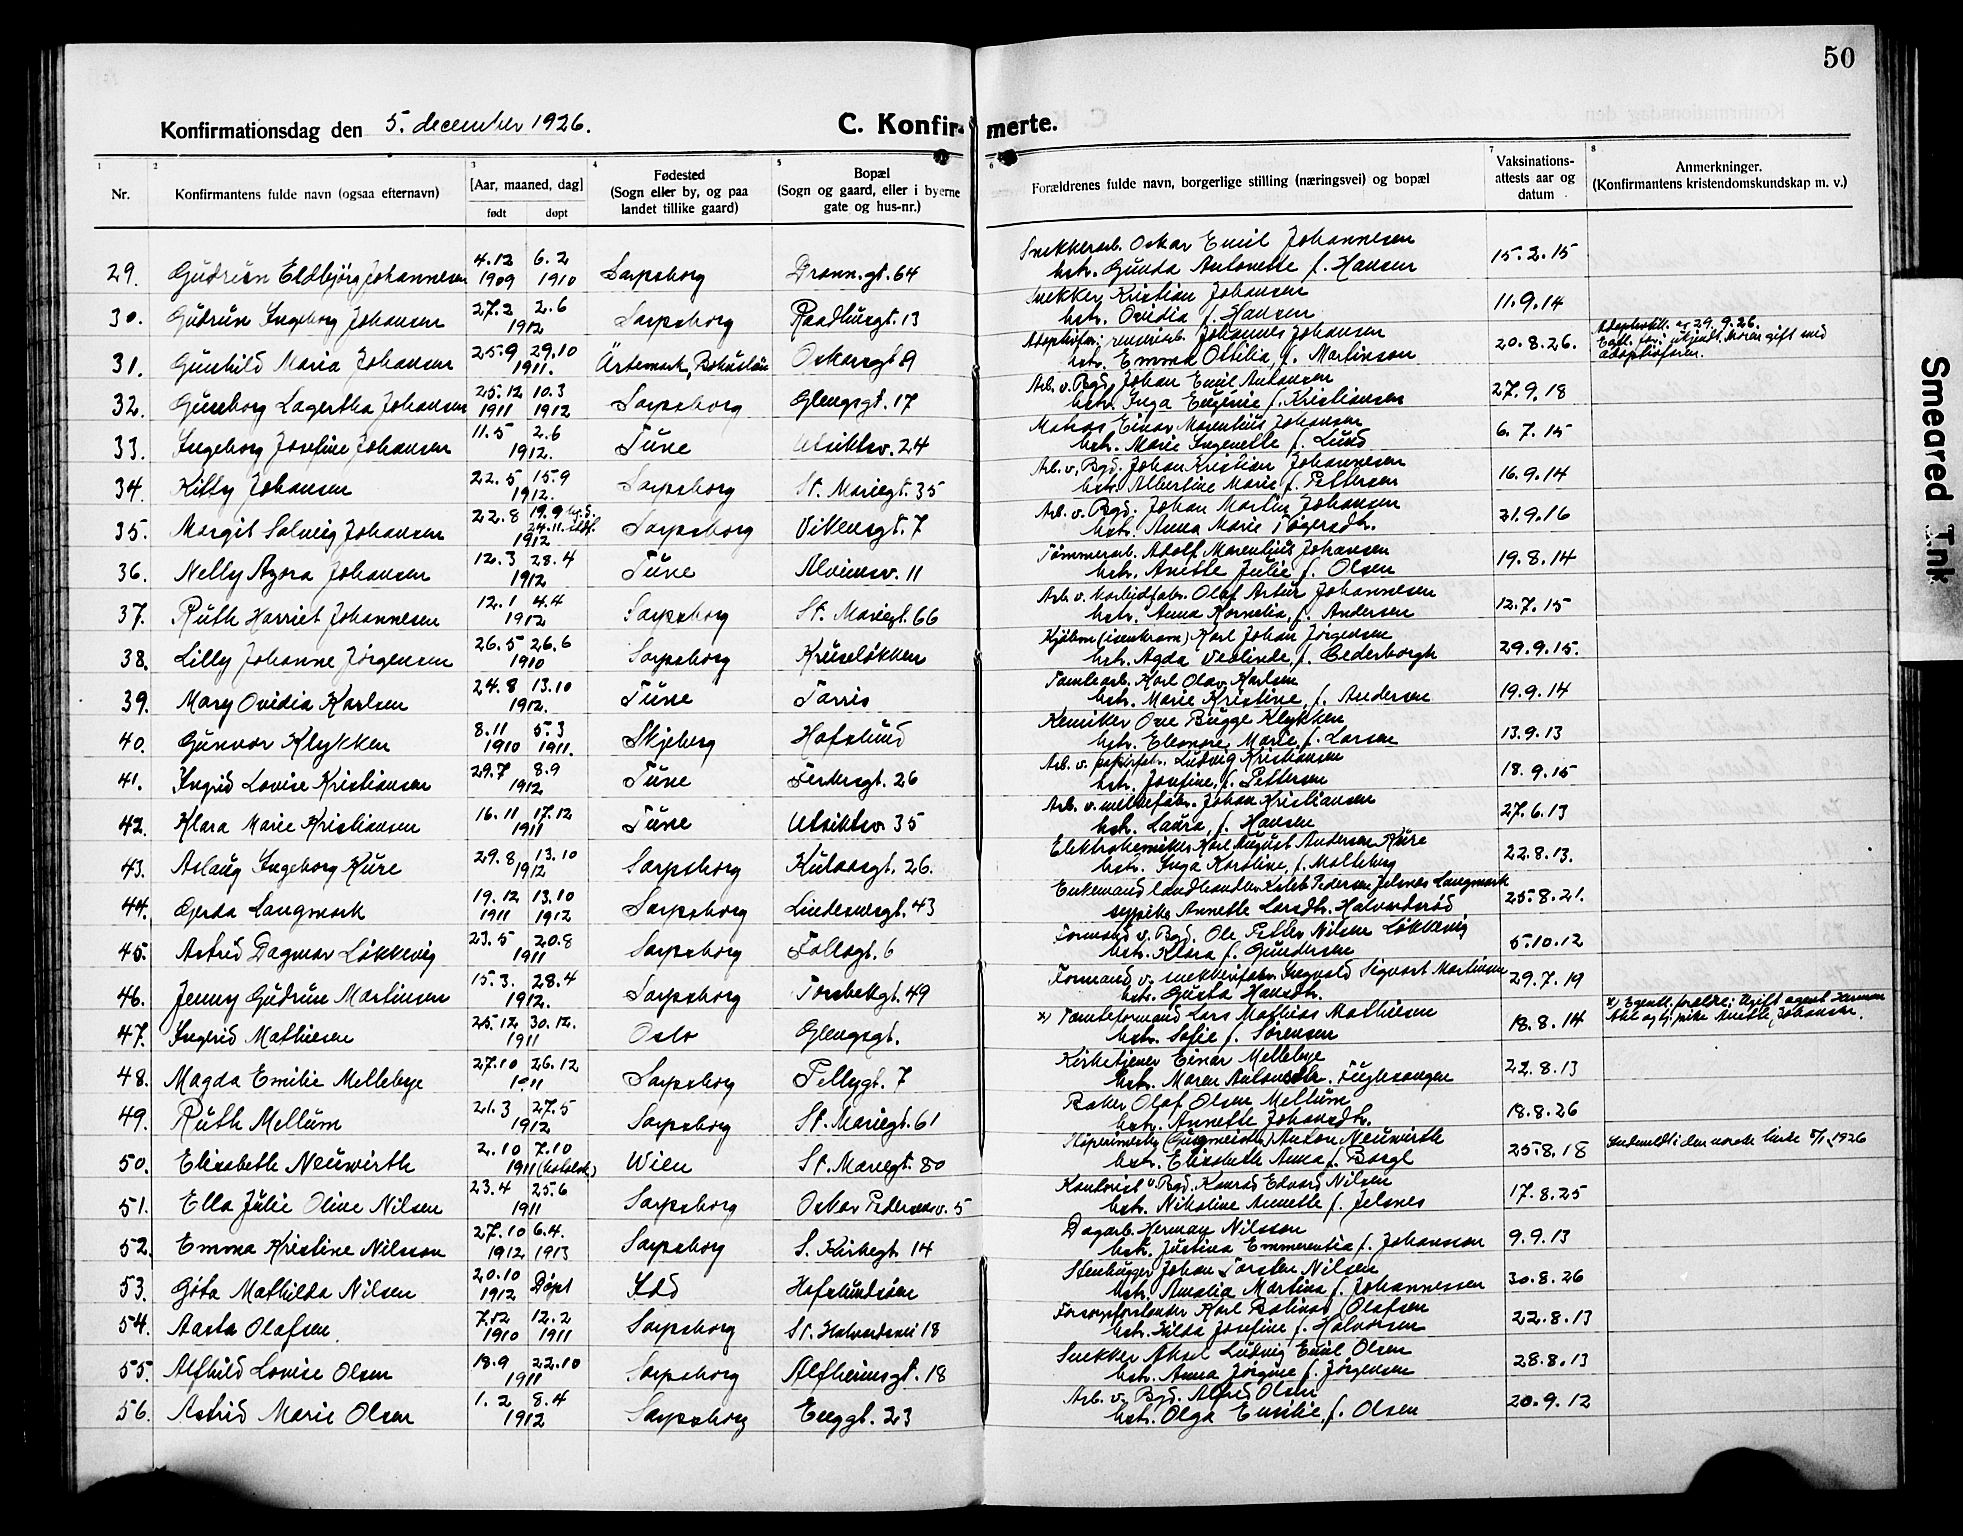 50
Konfirmationsdag den 5. december 1926.
C. Konfirmerte.
1 2 3 4 5 6 7 8
Nr.
Konfirmantens fulde navn (ogsaa efternavn)
[Aar, maaned, dag]
født døpt
Fødested
(Sogn eller by, og paa
landet tillike gaard)
Bopæl
(Sogn og gaard, eller i byerne
gate og hus-nr.)
Forældrenes fulde navn, borgerlige stilling (næringsvei) og bopæl
Vaksinations-
attests aar og
datum
Anmerkninger.
(Konfirmantens kristendomskundskap m. v.)
29. Gudrun Eldbjørg Johannesen 4.12 1909 6.2 1910 Sarpsborg Dronn.gt. 64 Snekkerarb. Oskar Emil Johannesen
hstr. Gunda Antonette f. Hansen 15.2.15
30. Gudrun Ingeborg Johansen 27.2 2.6 1912 Sarpsborg Raadhusgt. 13 Snekker Kristian Johansen
hstr. Ovidia f. Hansen 11.9.14
31. Gunhild Maria Johansen 25.9 29.10 1911. Ärtemark, Bohuslän Oskarsgt 9 Adoptivfor: Johannes Johansen
hstr. Emma Otilia, f. Martinson 20.8.26. Adoptivtill. av 29.9.26.
Egtl. far: ukjendt. Moren gift med
adoptivfaren.
32. Gunborg Lagertha Johansen 25.12 1911 10.3 1912 Sarpsborg Glengsgt. 17 Arb. v. Bgd. Johan Emil Antonsen
hstr. Inga Eugenie f. Kristiansen 27.9.18
33. Ingeborg Josefine Johansen 11.5 2.6 1912. Tune Utsiktsv. 24 Matros Einar Marentius Johansen
hstr. Marie Ingenette f. Lund 6.7.15
34. Kitty Johansen 22.5 15.9 1912. Sarpsborg St. Mariegt. 35 Arb. v. Bgd. Johan Kristian Johannesen
hstr. Albertine Marie f. Pettersen 16.9.14
35. Margit Solveig Johansen 22.8 19.9 24.11. 1912 Sarpsborg Vikensgt. 7 Arb. v. Bgd. Johan Martin Johansen
hstr. Anna Marie 21.9.16
36. Nelly Agora Johansen 12.3 28.4 1912 Tune Alvimsv. 11 Tømmerarb. Adolf Marentius Johansen
hstr. Anette Julie f. Olsen 19.8.14
37. Ruth Harriet Johannesen 12.1 4.4 1912 Sarpsborg St. Mariegt. 66 Arb. v. karbidfabr. Olaf Artur Johannesen
hstr. Anna Kornelia, f. Andersen 12.7.15
38. Lilly Johanne Jørgensen 26.5 26.6 1910 Sarpsborg Kruseløkken Kjøbm (isenkram) Karl Johan Jørgensen
hstr. Agda f. Cederborgh 29.9.15.
39. Mary Ovidia Karlsen 24.8 13.10 1912. Tune Torris Tomtearb. Karl Olav Karlsen
hstr. Marie Kristine, f. Andersen 19.9.14
40. Gunvor Klykken 8.11 1910 5.3 1911. Skjeberg Hafslund Kemiker Ove Bugge Klykken
hstr. Eleonore Marie, f. Larsen 13.9.13
41. Ingrid Lovise Kristiansen 29.7 8.9 1912 Tune Ferdersgt. 26 Arb. v. papirfabr. Ludvig Kristiansen
hstr. Josefine, f. Pettersen 18.9.15
42. Klara Marie Kristiansen 16.11 17.12 1911 Tune Utsiktsv 35 Arb. v. Johan Kristiansen
hstr. Laura, f. Hansen 27.6.13
43. Aslaug Ingeborg Kure 29.8 13.10 1912 Sarpsborg Kulaasgt. 26. Elektrokemiker Karl August Andersen Kure
hstr. Inga Karoline, f. Molleberg 22.8.13.
44. Gerda Langmark 19.12 1911 13.10 1912 Sarpsborg Lindemsgt. 43 Enkemand landhandler Kaleb Pedersen Jelsnes Langmark
sypike Annette Larsdtr. Halvardsrød 25.8.21.
45. Astrid Dagmar Løkkevig 23.5 20.8 1911 Sarpsborg Tollsgt. 6 Formand v. Bgd. Ole Petter Nilsen Løkkevig
hstr. Klara f. Gundersen 5.10.12
46. Jenny Gudrun Martinsen 15.3. 28.4 1912. Sarpsborg Torsbekgt. 49 Formand v. snekkerifabr. Ingvald Sigvart Martinsen
hstr. Gusta Hansdtr. 29.7.19
47. Ingrid Mathiesen 25.12 30.12. 1911 Oslo Glengsgt. x) Tomteformand Lars Mathias Mathiesen
hstr. Sofie f. Sørensen 18.8.14 x) Egentl. forældre: Ugift agent Herman
Ahl og tj.pike Anette Johansen.
48. Magda Emilie Mellebye 27.10 26.12 1911 Sarpsborg Pellygt. 7 Kirketjener Einar Mellebye
hstr. Maren Fuglesangen 22.8.13
49. Ruth Mellum 21.3 27.5 1912 Sarpsborg St. Mariegt. 61 Baker Olaf Olsen Mellum
hstr. Annette Johansdtr. 18.8.26
50. Elisabeth Neuwirth 2.10 7.10 1911 (katolsk) Wien St. Mariegt. 80 Anton Neuwirth
hstr. Elisabeth Anna f. Bargl 25.8.18 Indmeldt i den norske kirke 1926
51. Ella Julie Oline Nilsen 23.4 25.6 1911 Sarpsborg Oskar Pedersensv. 5 Kontorist v. Bgd. Konrad Edvard Nilsen
hstr. Nikoline Annette f. Jelsnes 17.8.25
52. Emma Kristine Nilsson 27.10 1912 6.4. 1913 Sarpsborg S. Kirkegt 14 Dagarb. Herman Nilsson
hstr. Justina Emmerentia f. Johansson 9.9.13
53. Gøta Mathilda Nilsen 20.10 1912 Døpt Idd Hafslundsøen Stenhugger Johan Torsten Nilsen
hstr. Amalia Martina f. Johannessen 30.8.26
54. Aasta Olafsen. 7.12 1910 12.2 1911 Sarpsborg St. Halvardsvei 18 Karl Olafsen
hstr. Hilda Josefine f. Halvorsen 22.8.13
55. Alfhild Lovise Olsen 18.9 22.10 1911 Sarpsborg Alfheimsgt. 18 Snekker Aksel Ludvig Emil Olsen
hstr. Anna Jørgine f. Jørgensen 28.8.13
56. Astrid Marie Olsen 1.2 8.4 1912 Sarpsborg Enggt. 23 Arb. v. Bgd. Alfred Olsen
hstr. Olga Emilie, f. Olsen 20.9.12
Smeared Ink